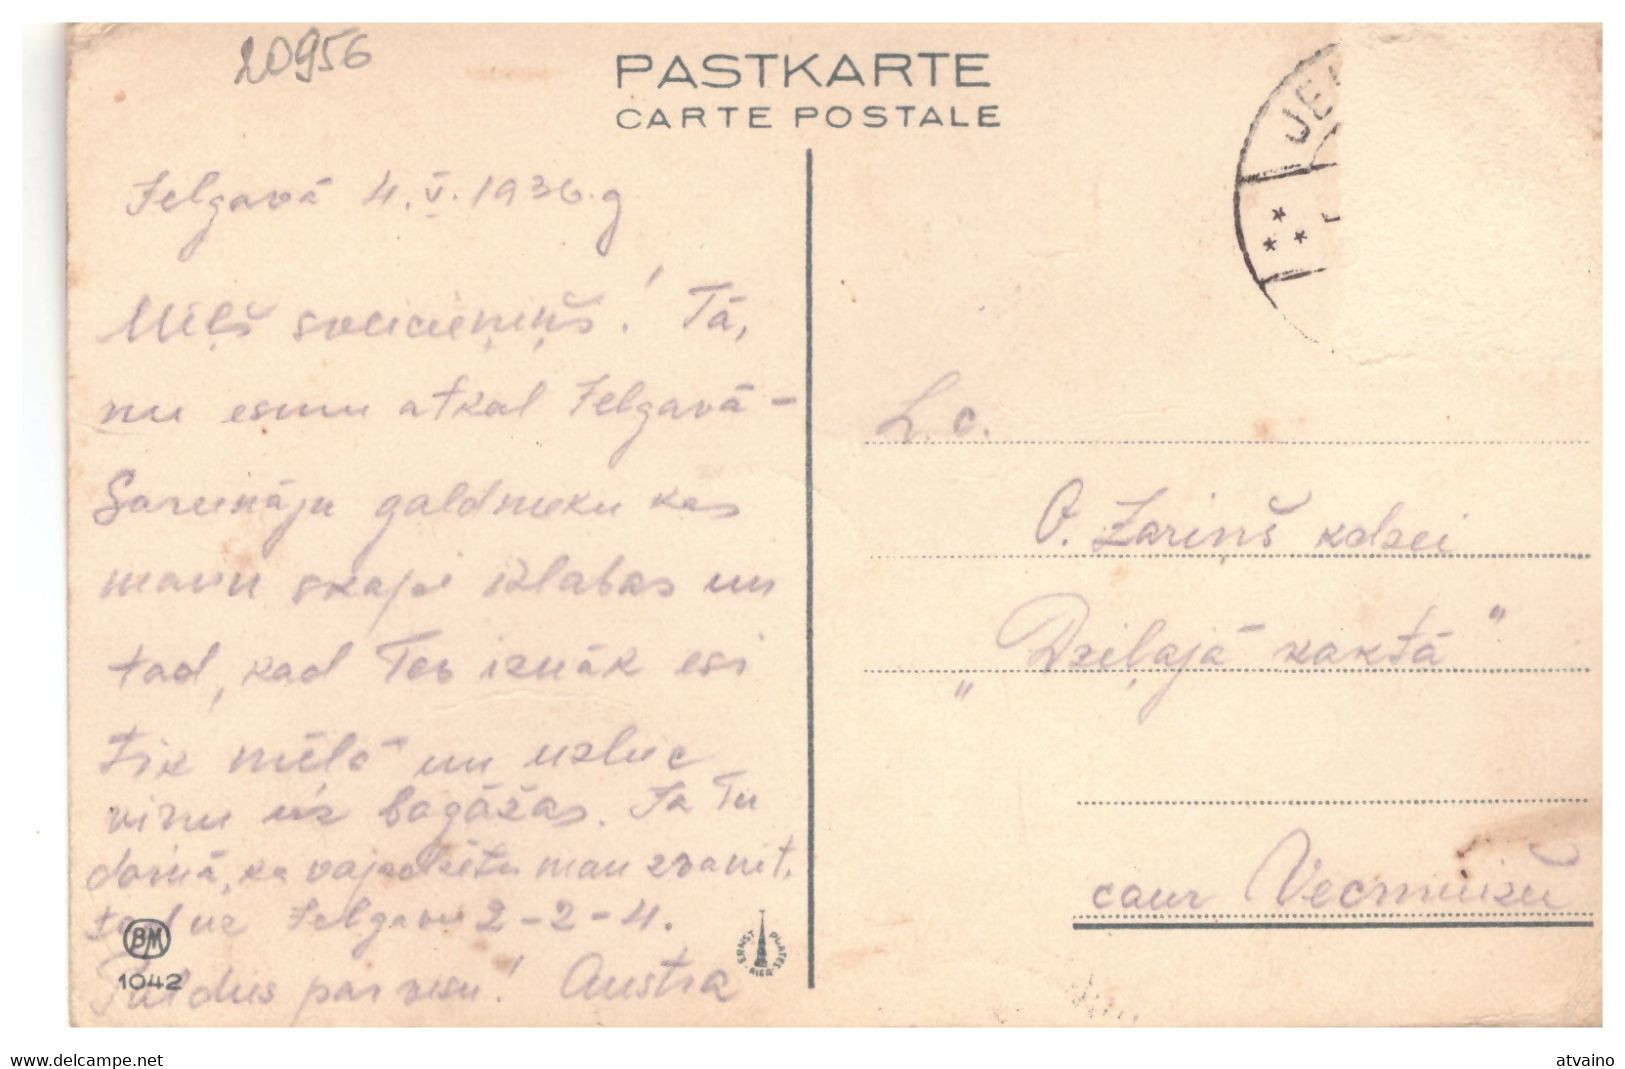 20956
PASTKARTE
CARTE POSTALE
Jelgavā 4.V.1936.g
Mīļš sveicieniņš! Tā,
nu esmu atkal Jelgavā -
Sarunāju galdnieku kas
manu skapi izlabos un
tad, kad Tev iznāk esi
tik mēlā un uzlūc
viņu uz bagāžas. Ja Tu
domā, ka vajadzētu man zvanīt,
tad uz Jelgavu 2-2-4.
Paldies par visu! Austra
BM
1042
ERNST PLATES RIGA
JE
L. c.
O. Zariņš kdzei
„Dziļajā kaktā"
caur Vecmuižu
www.delcampe.net
atvaino